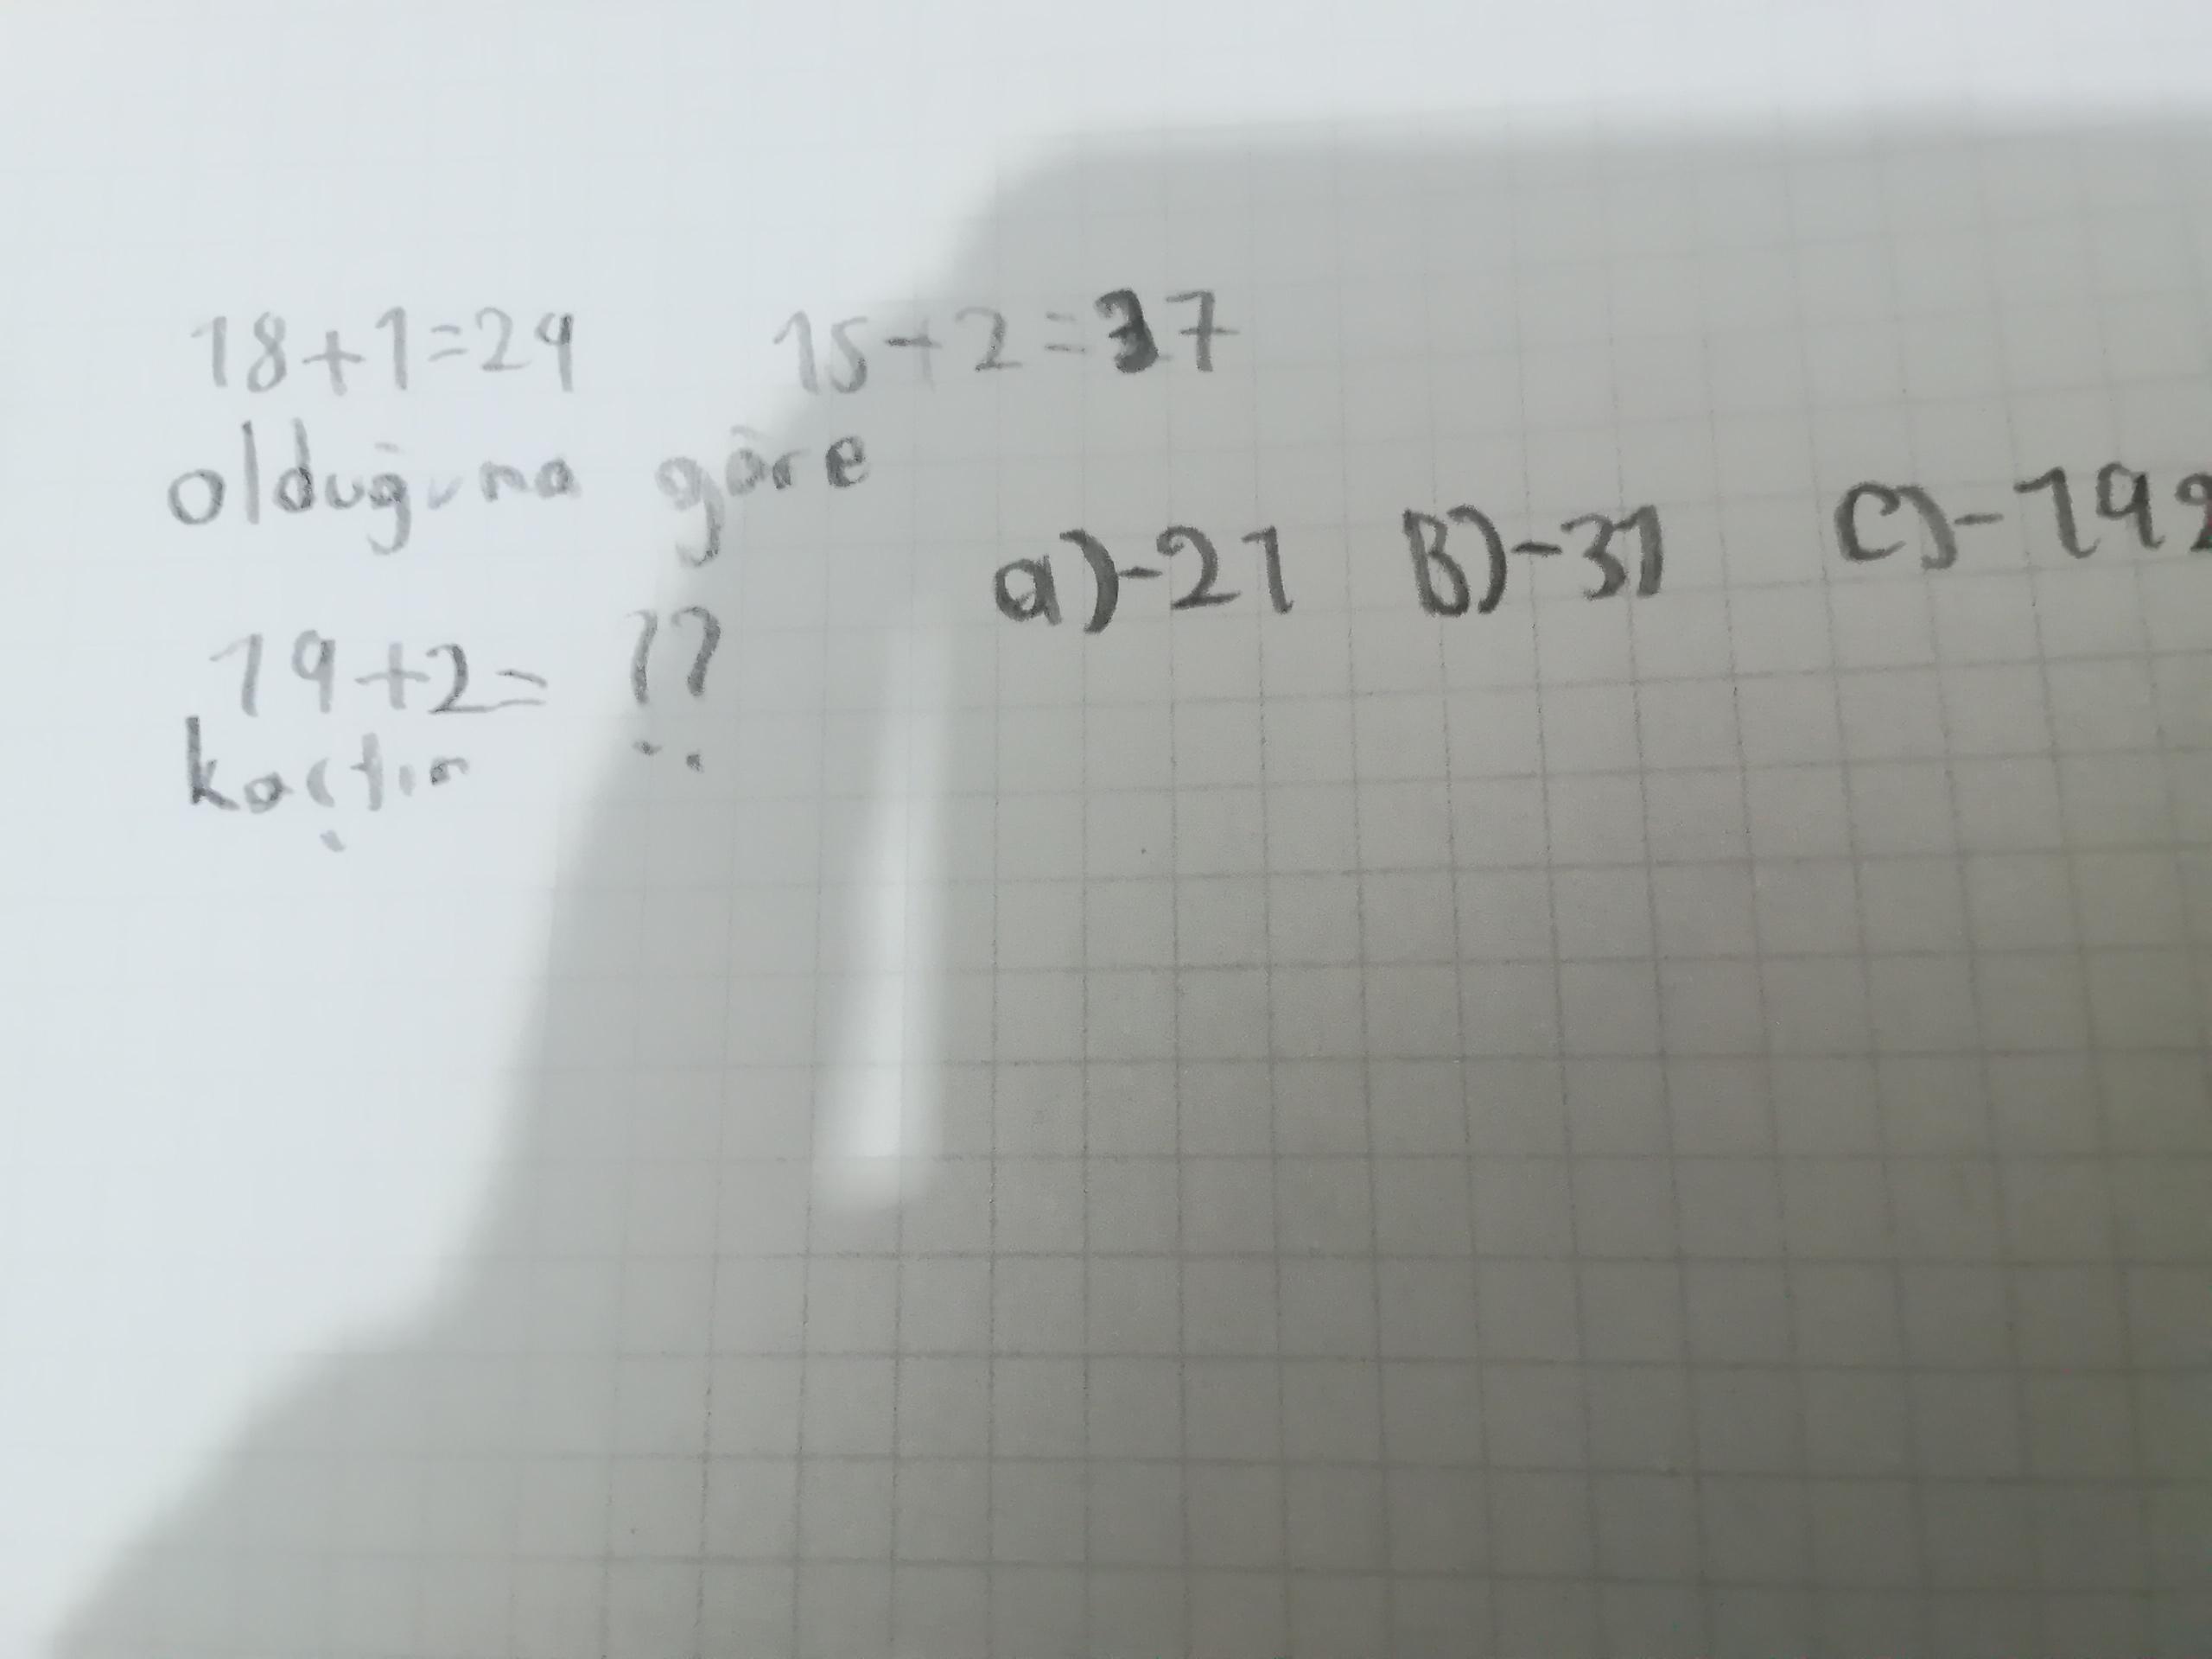 18+1=29 15+2=37
olduğuna göre
19+2= ??
kaçtır
a)-21 B)-31 C)-192